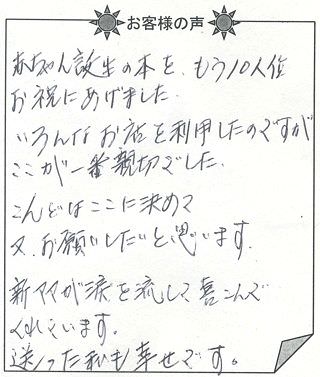 お客様の声
赤ちゃん誕生の本を、もう10人位
お祝にあげました.
いろんなお店を利用したのですが
ここが一番親切でした.
こんどはここに決めて
又、お願いしたいと思います.
新ママが涙を流して喜こんで
くれています。
送った私も幸せです。